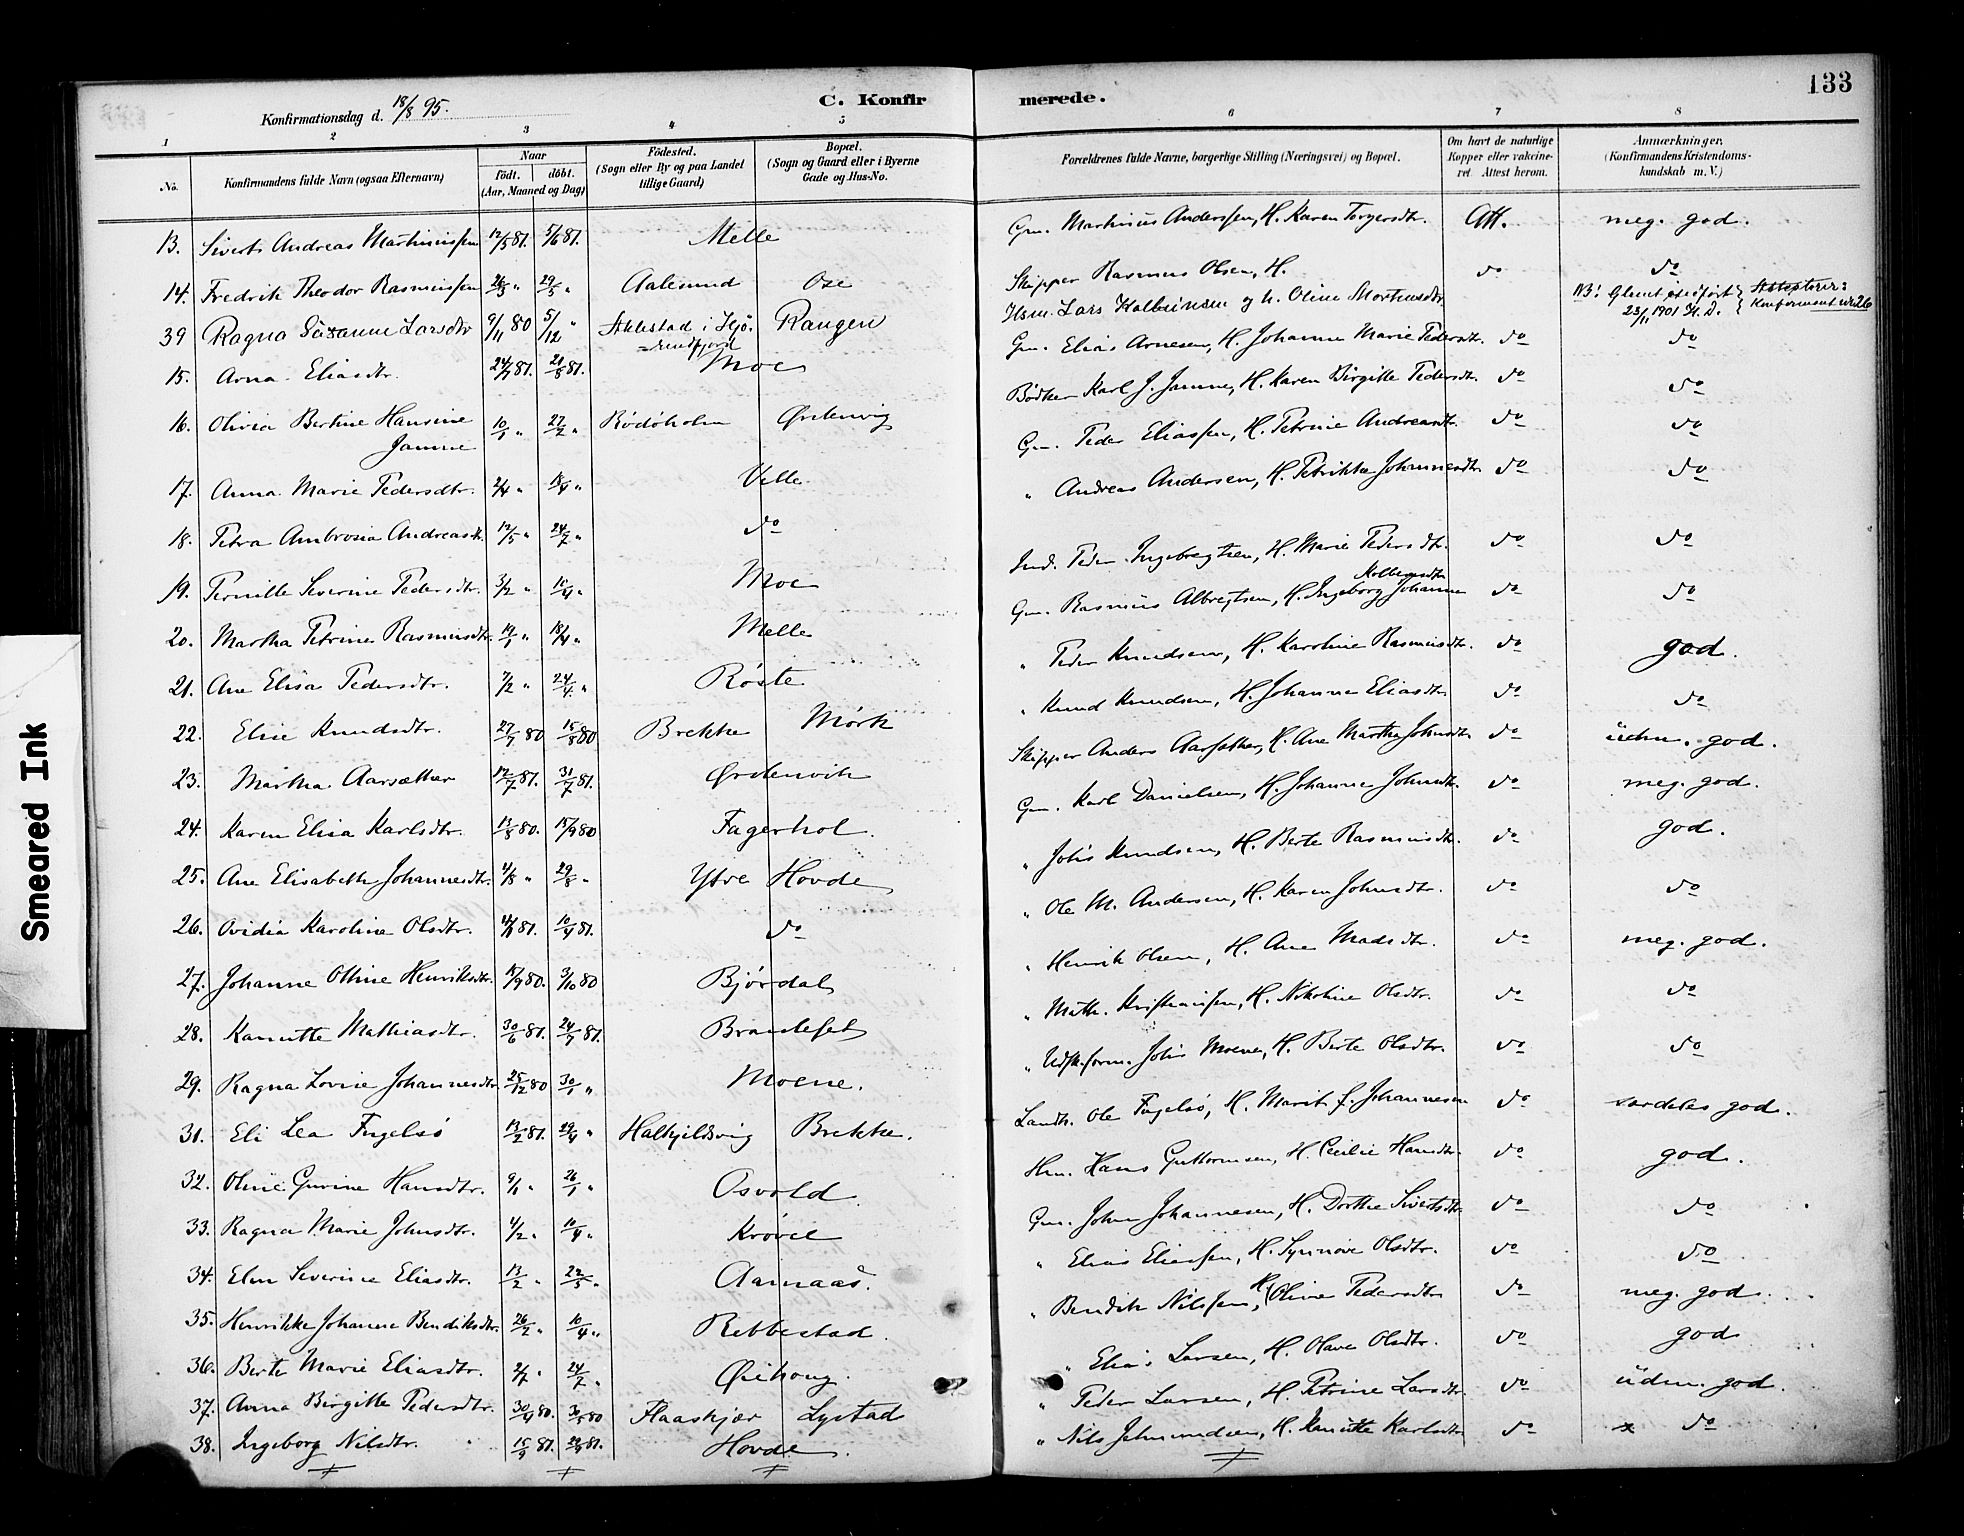 133
Konfirmationsdag d. 18/8 95.
C. Konfirmerede.
1 2 3 4 5 6 7 8
No.
Konfirmandens fulde Navn (ogsaa Efternavn)
Naar
födt. döbt.
(Aar, Maaned og Dag)
Födested.
(Sogn eller By og paa Landet
tillige Gaard)
Bopæl.
(Sogn og Gaard eller i Byerne
Gade og Hus-No.
Forældrenes fulde Navne, borgerlige Stilling (Næringsvei) og Bopæl.
Om havt de naturlige
Kopper eller vakcine-
ret. Attest herom.
Anmærkninger.
(Konfirmandens Kristendoms-
kundskab m. V.)
13. Sivert Andreas Martinussen 12/5 81. 5/6 81. Melle Gm. Martinus Anderssen, H. Karen Torgersdtr. Att. meg. god.
14. Fredrik Theodor Rasmussen 26/3 " 29/5 " Aalesund Ose Skipper Rasmus Olsen, H. do do
39 Ragna Susanne Larsdtr 9/11 80 5/12 " Rangen Hsm. Lars Kolbeinsen og h. Oline Mortensdtr NB! Glemt indført 23/11 1901 Konfirmant nr 26
15. Arna Eliasdtr. 24/7 81. 21/8 81. Moe Gm. Elias Arnesen, H. Johanne Marie Pedersdtr. do do
16. Olivia Bertine Hansine
Jamne 10/1 " 27/2 " Rødøholm Ørstenvig Bödker Karl J. Jamne, H. Karen Birgitte Pedersdtr. do do
17. Anna Marie Pedersdtr. 2/4 " 18/4 " Velle Gm. Peder Eliassen, H. Petrine Andreasdtr. do do
18. Petra Ambrosia Andreasdtr. 12/5 " 24/7 " do " Andreas Andersen, H. Petrikke Johannesdtr. do do
19. Pernille Severine Pedersdtr. 3/2 " 10/4 " Moe Ind. Peder Ingebregtsen, H. Marie Pedersdtr. do do
20. Martha Petrine Rasmusdtr. 19/1 " 18/4 " Melle Gm. Rasmus Albregtsen, H. Ingeborg Johanne do do
21. Ane Elisa Pedersdtr. 7/2 " 24/4 " Røste " Peder Knudsen, H. Karoline Rasmusdtr. do god.
22. Elise Knudsdtr. 27/7 80 15/8 80 Brekke Mørk " Knud Knudsen, H. Johanne Eliasdtr. do do
23. Martha Aarsæther 12/7 81. 31/7 81. Ørstenvik Skipper Anders Aarsæther, H. Ane Martha Johnsdtr. do üdm. god.
24. Karen Elisa Karlsdtr. 13/8 80. 15/9 80 Fagerhol. Gm. Karl Danielsen, H. Johanne Johnsdtr. do meg. god.
25. Ane Elisabeth Johannesdtr. 4/8 " 29/8 " Ytre Hovde " Johs Knudsen, H. Berte Rasmusdtr. do god.
26. Ovidia Karoline Olsdtr. 81. 10/4 81. do " Ole M. Andersen, H. Karen Johnsdtr. do do
27. Johanne Oline Henriksdtr. 18/9 80. 3/10 80 Bjørdal " Henrik Olsen, H. Ane Madsdtr. do meg. god.
28. Kanutte Mathiasdtr. 30/6 81. 24/7 81. Brauteset " Math. Kristiansen, H. Nikoline Olsdtr. do do
29. Ragna Lovise Johannesdtr. 25/12 80 30/1 " Moene. " Udsk.form. Johs Moene, H. Berte Olsdtr. do do
31. Eli Lea Fugelsö 13/2 81. 29/4 " Halkjildsvig Brekke. Landh. Ole Fugelsö, H. Marit f. Johannesen do særdeles god.
32. Oline Gurine Hansdtr. 9/1 " 26/1 " Osvold Hm. Hans Guttormsen, H. Cecilie Hansdtr. do god.
33. Ragna Marie Johnsdtr. 4/2 " 10/4 " Krøvel Gm. John Johannesen, H. Dorthe Sivertsdtr. do do
34. Elen Severine Eliasdtr. 13/2 " 22/5 " Aarnaas. " Elias Eliassen, H. Synnøve Olsdtr. do do
35. Henrikke Johanne Bendiksdtr. 26/2 " 10/4 " Rebbestad. " Bendik Nilssen, H. Oline Pedersdtr do meg. god.
36. Berte Marie Eliasdtr. 2/7 " 24/7 " Øihoug. " Elias Larsen, H. Olave Olsdtr. do god
37. Anna Birgitte Pedersdtr. 30/4 80. 30/5 80 Flaaskjær Lystad " Peder Larsen, H. Petrine Larsdtr. do üdm. god.
38. Ingeborg Nilsdtr. 15/9 81. 81. Hovde. " Nils Johnsen, H. Kanutte Karlsdtr do x do
Smeared Ink